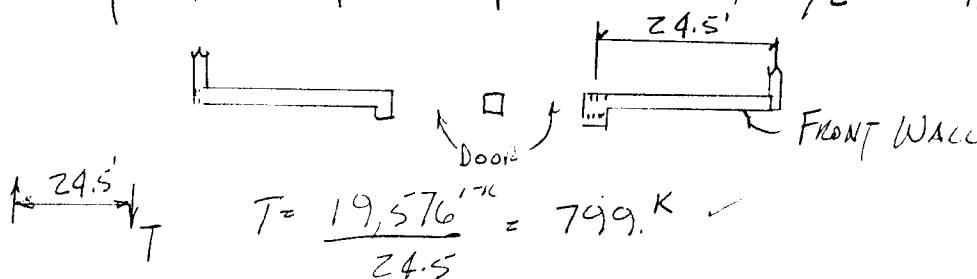 24.5'
DOOR
FRONT WALL
24.5'
T
T = 19,576'-K / 24.5 = 799.K ✓